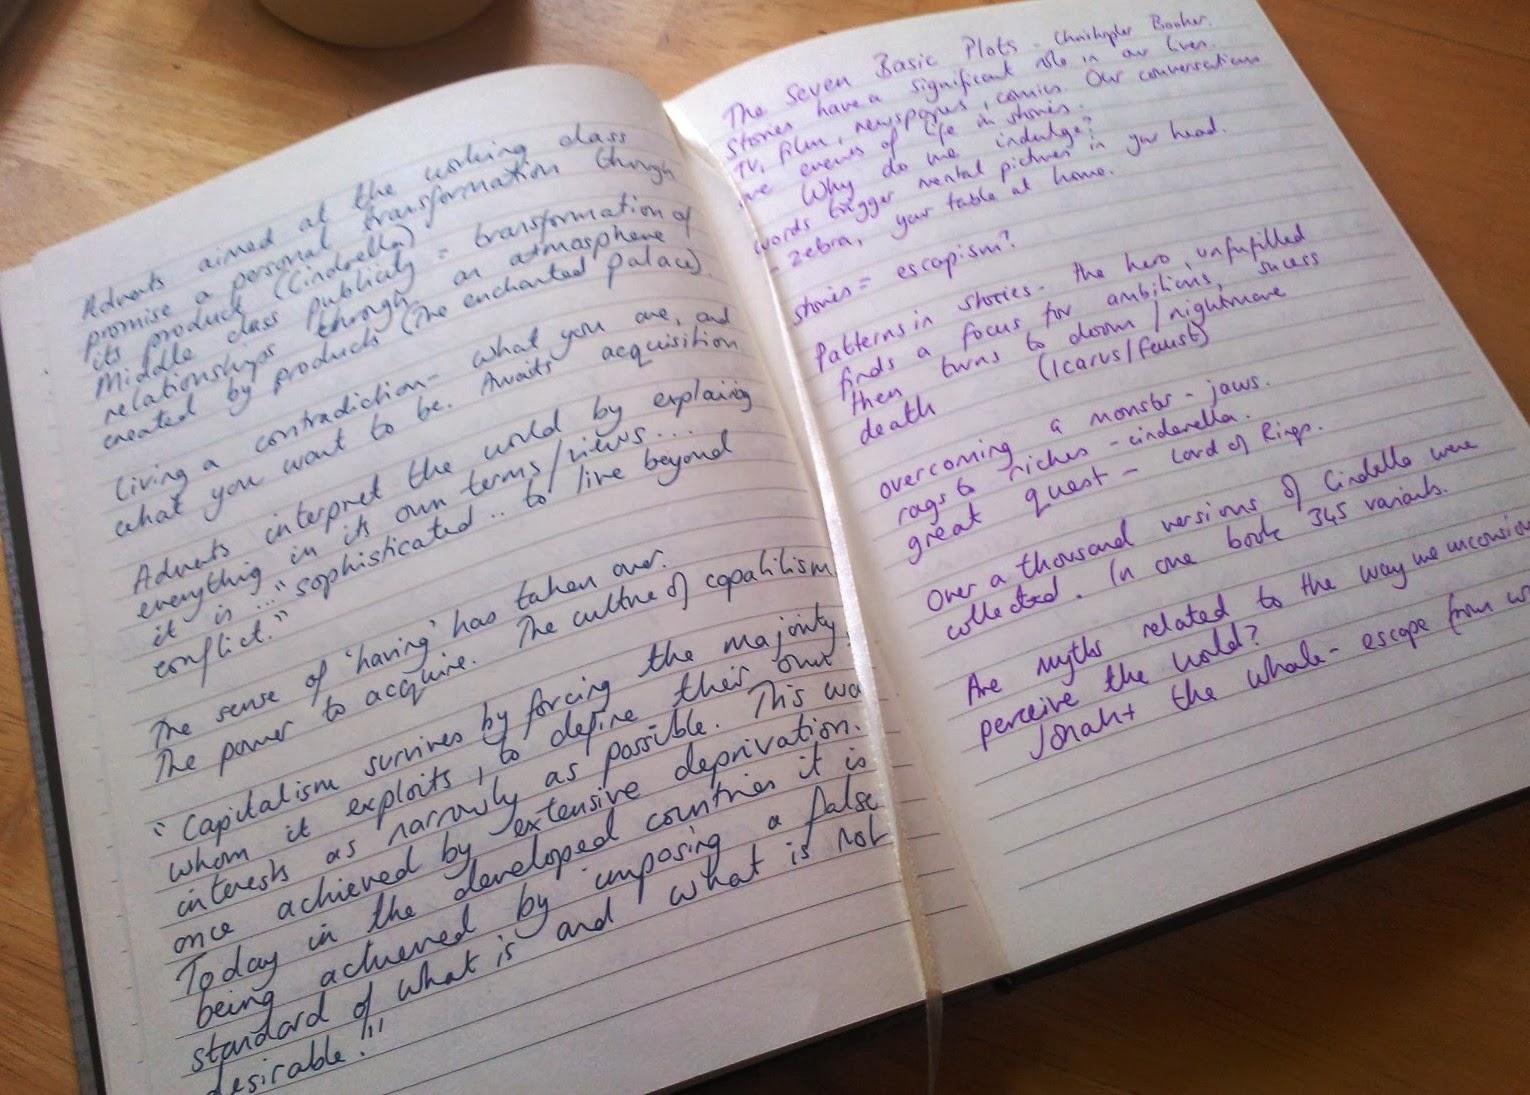 Adverts aimed at the working class
promise a personal transformation through
its product (Cinderella)
Middle class publicity = transformation of
relationships through an atmosphere
created by products (The enchanted palace).
Living a contradiction - what you are, and
what you want to be. Awaits acquisition
Adverts interpret the world by explaining
everything in its own terms/views....
it is ... "sophisticated .. to live beyond
conflict."
The sense of 'having' has taken over.
The power to acquire. The culture of capatilism
"Capitalism survives by forcing the majority,
whom it exploits, to define their own
interests as narrowly as possible. This wa
once achieved by extensive deprivation.
Today in the developed countries it is
being achieved by imposing a false
standard of what is and what is not
desirable!"
The Seven Basic Plots - Christopher Booker.
Stories have a significant role in our lives.
TV, film, newspapers, comics. Our conversations
are events of life in stories.
Why do we indulge?
words trigger mental pictures in your head.
- zebra, your table at home.
stories = escapism?
Patterns in stories. The hero, unfulfilled
finds a focus for ambitions, sucess
then turns to doom / nightmare
death (Icarus/faust)
overcoming a monster - jaws.
rags to riches - cinderella.
great quest - Lord of Rings.
Over a thousand versions of Cindella were
collected. In one book 345 variants.
Are myths related to the way we unconsio
perceive the world?
Jonah + the whale - escape from